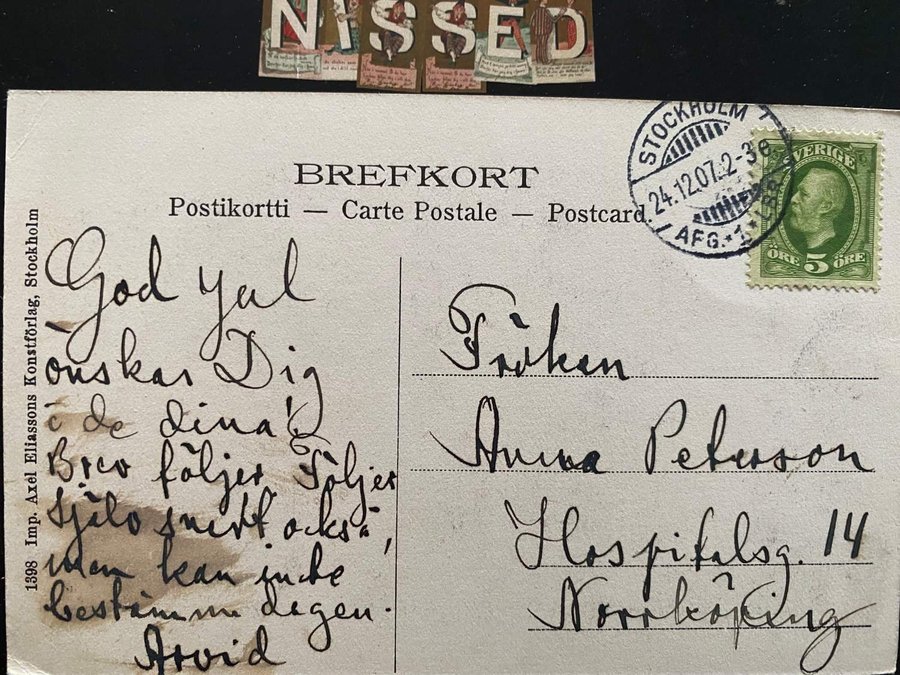 NISSED
BREFKORT
Postikortti — Carte Postale — Postcard.
STOCKHOLM 1
24.12.07.2-3e
AFG.*1*LBR.
SVERIGE
ÖRE 5 ÖRE
1398 Imp. Axel Eliassons Konstförlag, Stockholm
God Jul
önskar Dig
o de dina!
Brev följer. Följer
själv snart också,
men kan inte
bestämma dagen.
Arvid
Fröken
Anna Peterson
Hospitalsg. 14
Norrköping